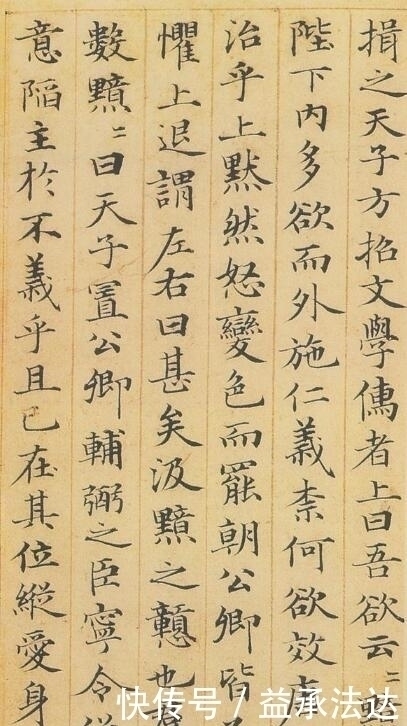 揖之天子方招文學儒者上曰吾欲云〻
陛下内多欲而外施仁義柰何欲效
治乎上默然怒變色而罷朝公卿皆
懼上退謂左右曰甚矣汲黯之戇也
數黯〻曰天子置公卿輔弼之臣寧令
意陷主於不義乎且已在其位縱愛身
快传号 / 益承法达